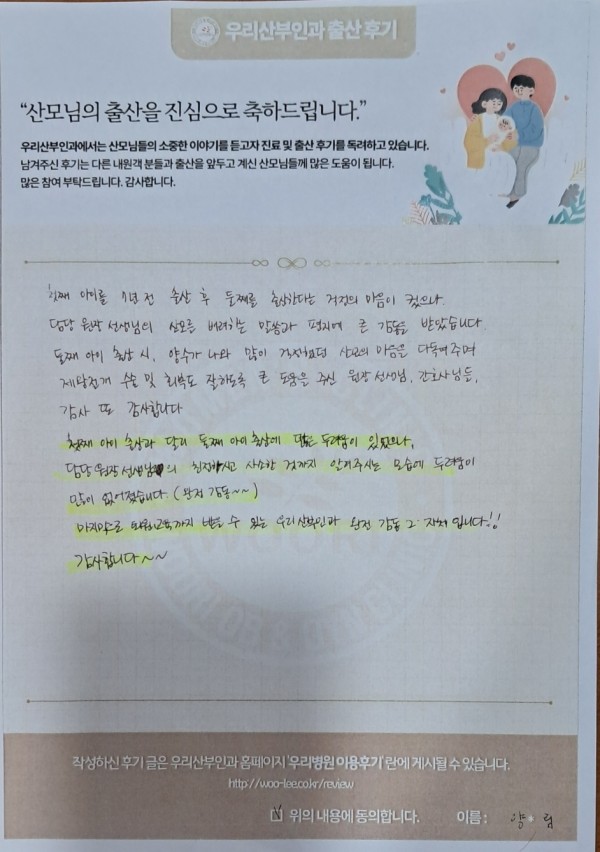 우리산부인과 출산 후기
“산모님의 출산을 진심으로 축하드립니다.”
우리산부인과에서는 산모님들의 소중한 이야기를 듣고자 진료 및 출산 후기를 독려하고 있습니다.
남겨주신 후기는 다른 내원객 분들과 출산을 앞두고 계신 산모님들께 많은 도움이 됩니다.
많은 참여 부탁드립니다. 감사합니다.
첫째 아이를 7년 전 출산 후 둘째를 출산한다는 걱정의 마음이 컸으나
담당 원장 선생님의 산모를 배려하는 말씀과 편지에 큰 감동을 받았습니다
둘째 아이 출산 시, 양수가 나와 많이 걱정했던 산모의 마음을 다독여주며
제왕절개 수술 및 회복도 잘하도록 큰 도움을 주신 원장 선생님, 간호사님들,
감사 또 감사합니다
첫째 아이 출산과 달리 둘째 아이 출산에 두려움이 있었으나,
담당 원장 선생님의 친절하시고 사소한 것까지 알려주시는 모습에 두려움이
많이 없어졌습니다. (완전 감동~~)
마지막으로 받을 수 있는 우리산부인과 완전 감동 그 자체 입니다!!
감사합니다~~
작성하신 후기 글은 우리산부인과 홈페이지 '우리병원 이용후기' 란에 게시될 수 있습니다.
http://woo-lee.co.kr/review
위의 내용에 동의합니다. 이름 : 양 림